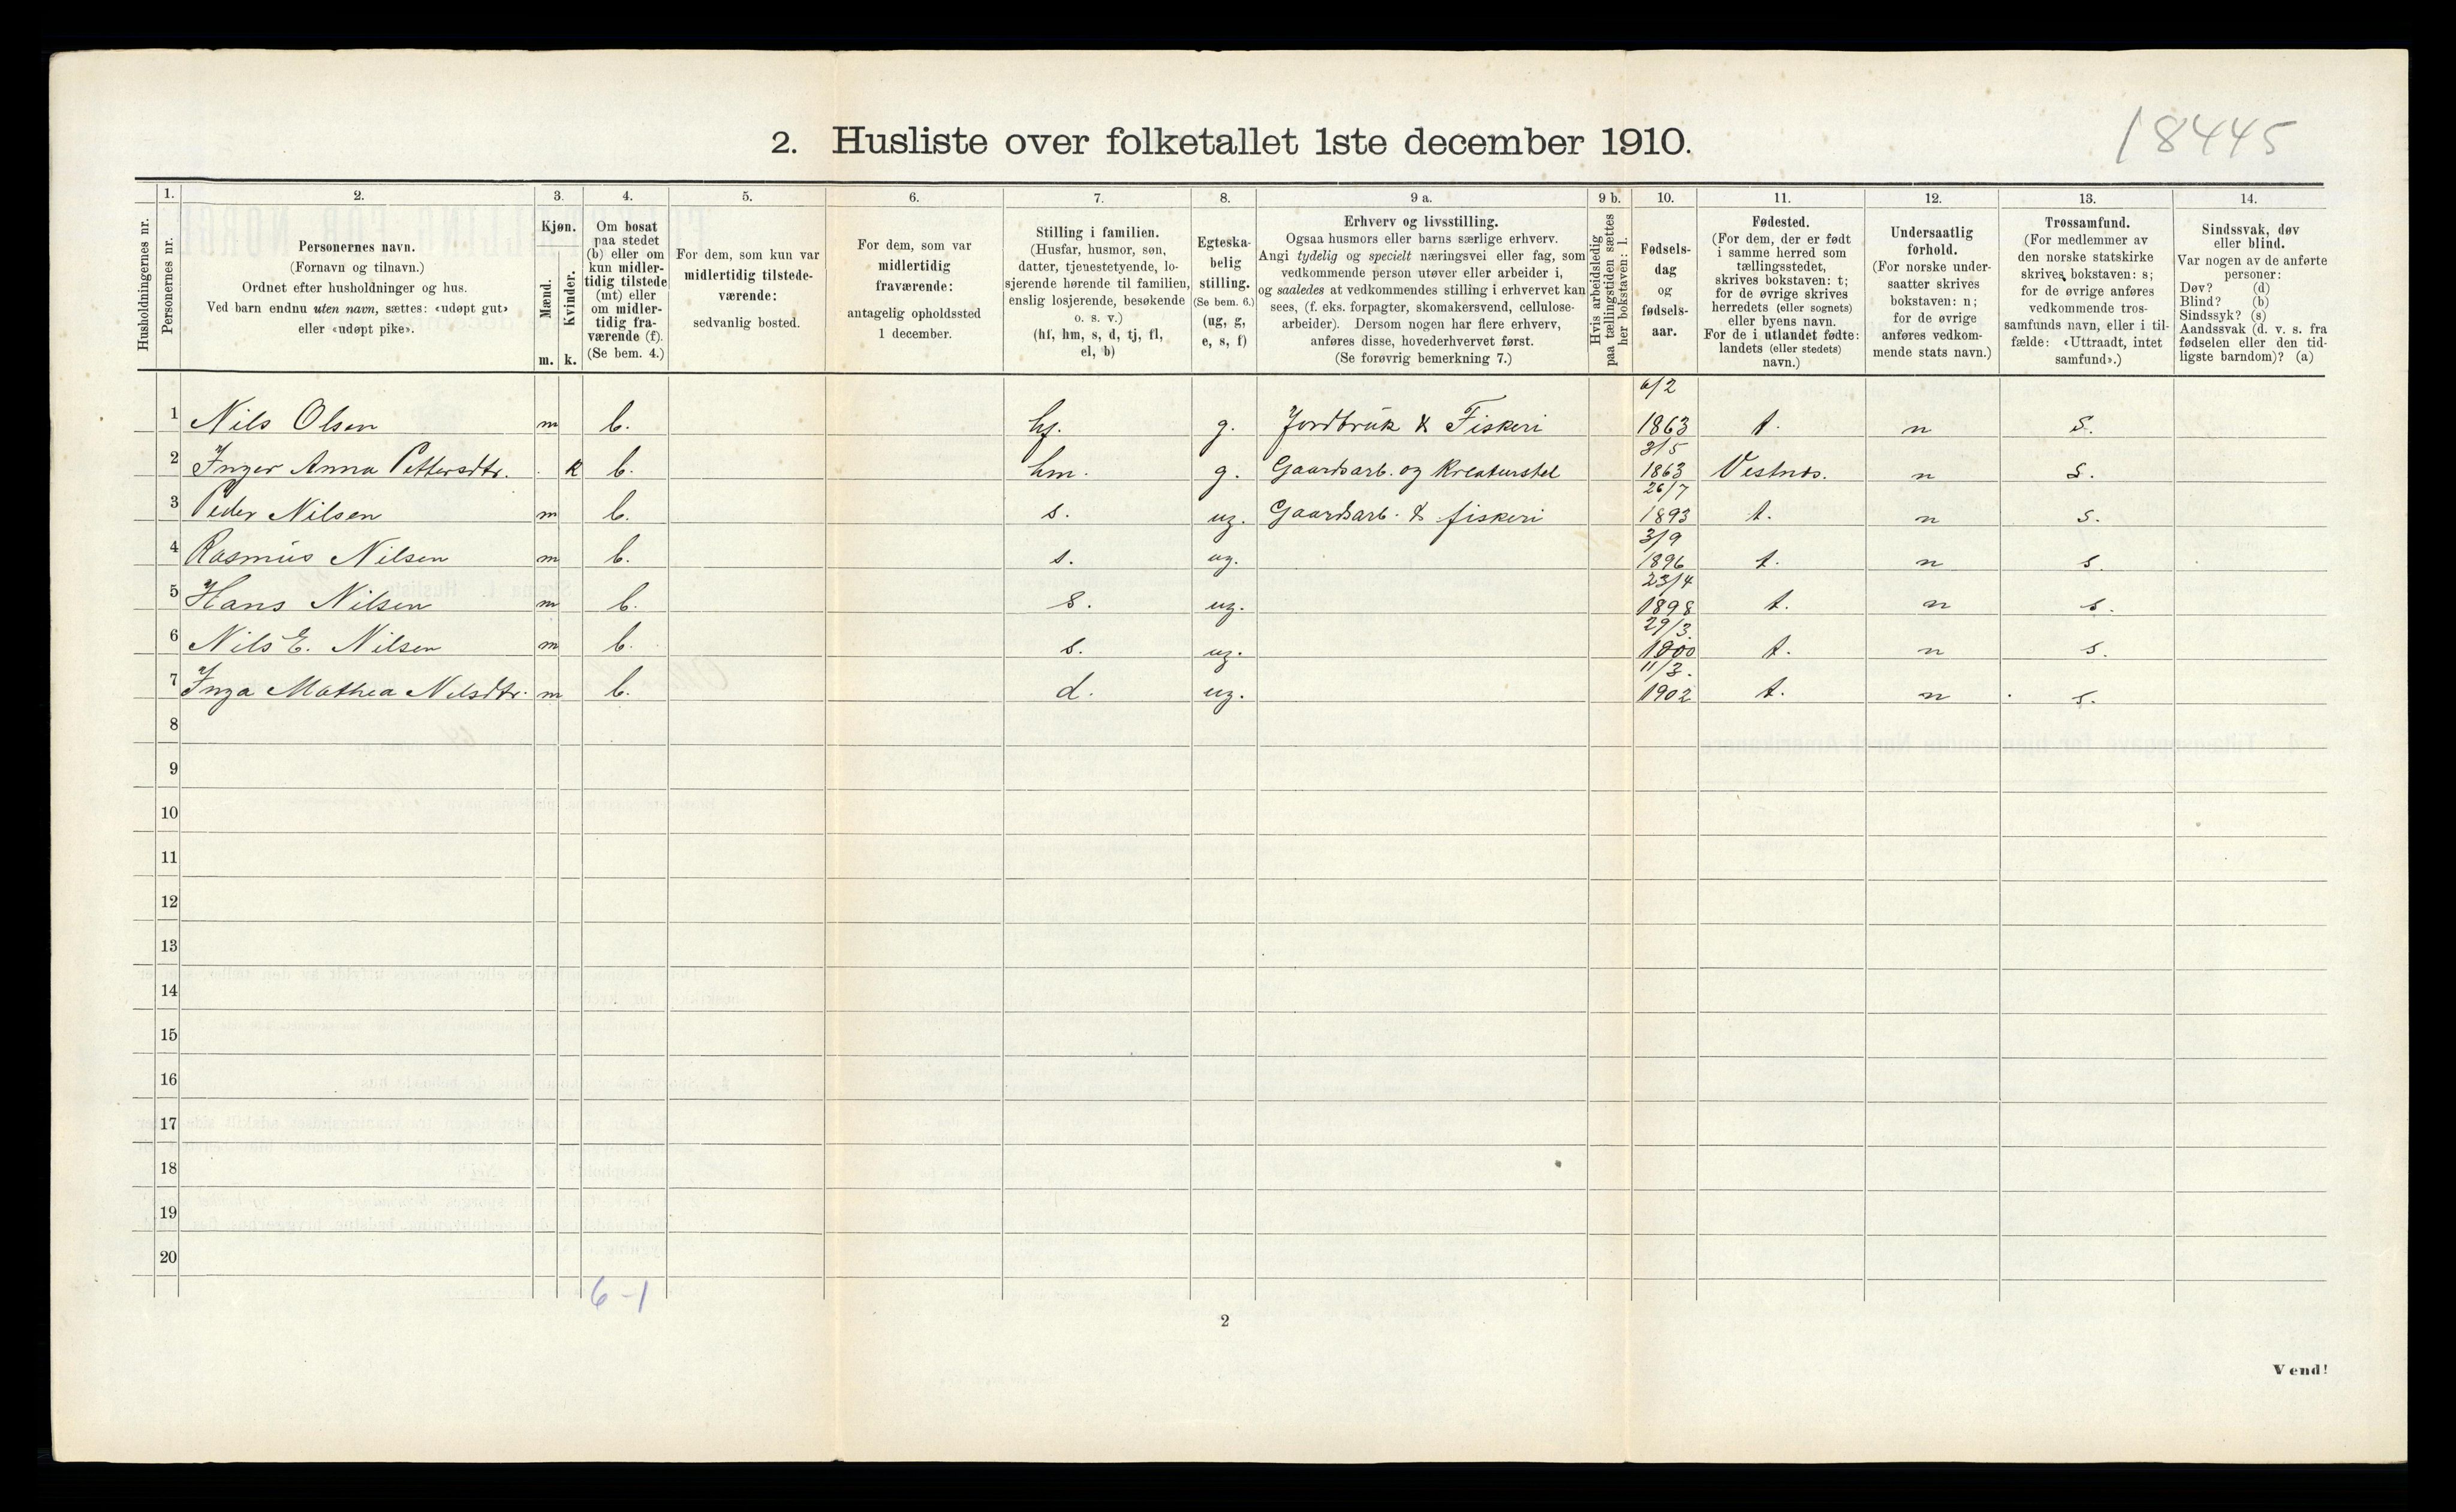 18445
2. Husliste over folketallet 1ste december 1910.
Husholdningernes nr.
1.
Personernes nr.
2.
Personernes navn.
(Fornavn og tilnavn.)
Ordnet efter husholdninger og hus.
Ved barn endnu uten navn, sættes: «udøpt gut»
eller «udøpt pike».
3.
Kjøn.
Mænd.
m.
Kvinder.
k.
4.
Om bosat
paa stedet
(b) eller om
kun midler-
tidig tilstede
(mt) eller
om midler-
tidig fra-
værende (f).
(Se bem. 4.)
5.
For dem, som kun var
midlertidig tilstede-
værende:
sedvanlig bosted.
6.
For dem, som var
midlertidig
fraværende:
antagelig opholdssted
1 december.
7.
Stilling i familien.
(Husfar, husmor, søn,
datter, tjenestetyende, lo-
sjerende hørende til familien,
enslig losjerende, besøkende
o. s. v.)
(hf, hm, s, d, tj, fl,
el, b)
8.
Egteska-
belig
stilling.
(Se bem. 6.)
(ug, g,
e, s, f)
9 a.
Erhverv og livsstilling.
Ogsaa husmors eller barns særlige erhverv.
Angi tydelig og specielt næringsvei eller fag, som
vedkommende person utøver eller arbeider i,
og saaledes at vedkommendes stilling i erhvervet kan
sees, (f. eks. forpagter, skomakersvend, cellulose-
arbeider). Dersom nogen har flere erhverv,
anføres disse, hovederhvervet først.
(Se forøvrig bemerkning 7.)
9 b.
Hvis arbeidsledig
paa tællingstiden sættes
her bokstaven: l.
10.
Fødsels-
dag
og
fødsels-
aar.
11.
Fødested.
(For dem, der er født
i samme herred som
tællingsstedet,
skrives bokstaven: t;
for de øvrige skrives
herredets (eller sognets)
eller byens navn.
For de i utlandet fødte:
landets (eller stedets)
navn.)
12.
Undersaatlig
forhold.
(For norske under-
saatter skrives
bokstaven: n;
for de øvrige
anføres vedkom-
mende stats navn.)
13.
Trossamfund.
(For medlemmer av
den norske statskirke
skrives bokstaven: s;
for de øvrige anføres
vedkommende tros-
samfunds navn, eller i til-
fælde: «Uttraadt, intet
samfund».)
14.
Sindssvak, døv
eller blind.
Var nogen av de anførte
personer:
Døv? (d)
Blind? (b)
Sindssyk? (s)
Aandssvak (d. v. s. fra
fødselen eller den tid-
ligste barndom)? (a)
1 Nils Olsen m b. hf. g. Jordbruk & Fiskeri 6/2 1863 t. n s.
2 Inger Anna Pettersdtr. k b. hm. g. Gaardsarb. og Kreaturstel 3/5 1863 Vestnes. n s.
3 Peder Nilsen m b. s. ug. Gaardsarb. & fiskeri 26/7 1893 t. n s.
4 Rasmus Nilsen m b. s. ug. 3/9 1896 t. n s.
5 Hans Nilsen m b. s. ug. 23/4 1898 t. n s.
6 Nils E. Nilsen m b. s. ug. 29/3. 1900 t. n s.
7 Inga Mathea Nilsdtr. m b. d. ug. 11/3. 1902 t. n s.
8
9
10
11
12
13
14
15
16
17
18
19
20
6-1
2
Vend!